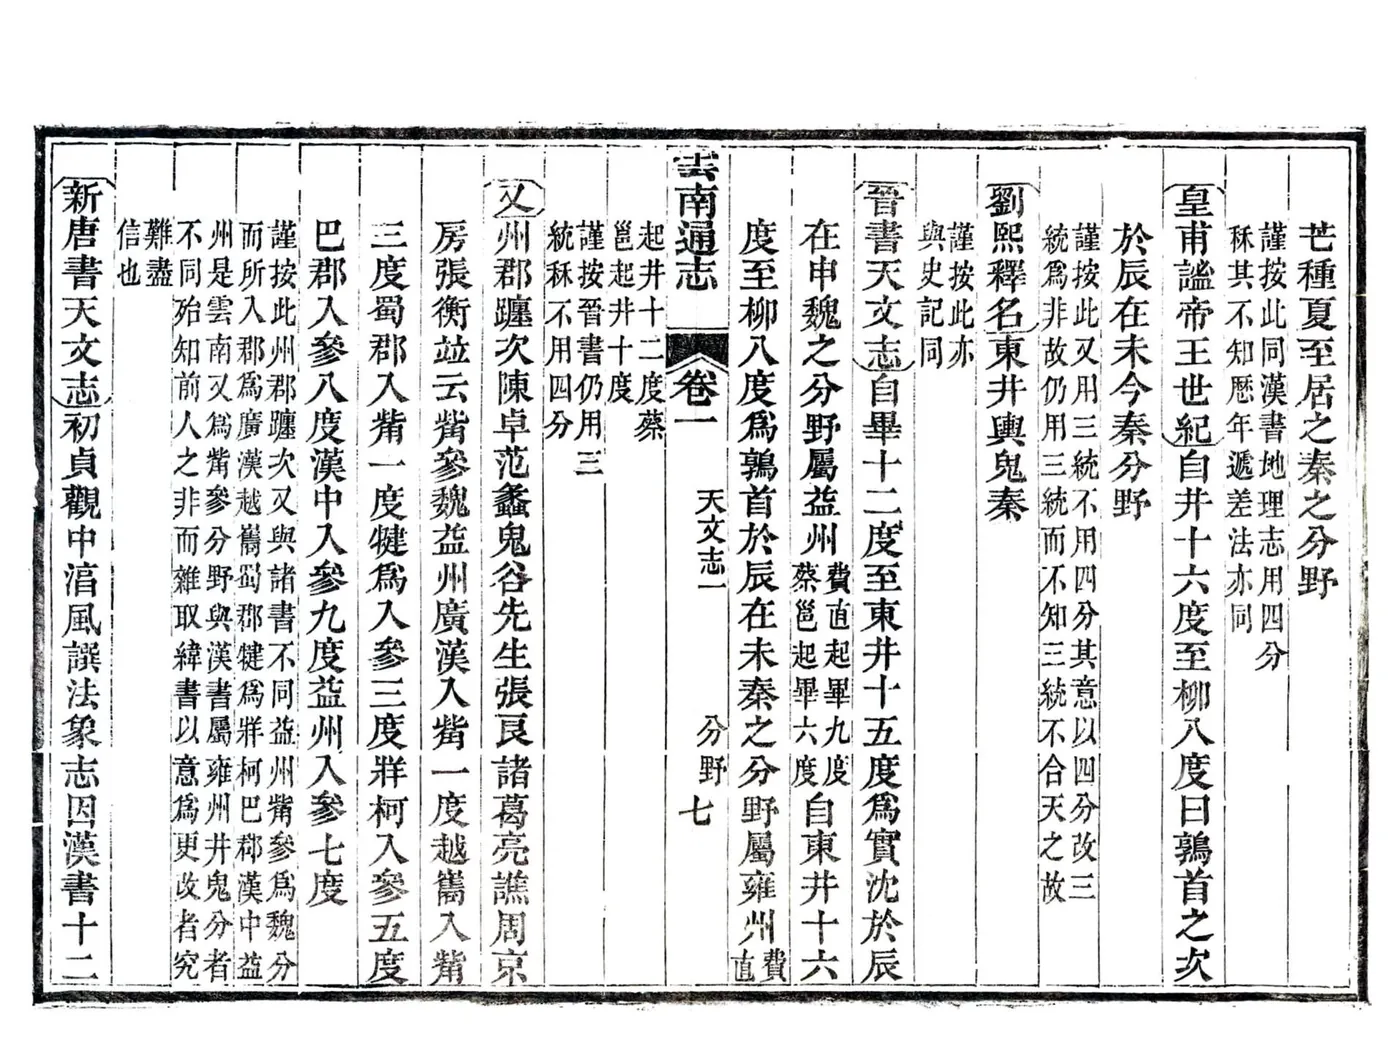 芒種夏至居之秦之分野
謹按此同漢書地理志用四分
秝其不知歷年遞差法亦同
皇甫謐帝王世紀自井十六度至柳八度曰鶉首之次
於辰在未今秦分野
謹按此又用三統不用四分其意以四分改三
統爲非故仍用三統而不知三統不合天之故
劉熙釋名東井輿鬼秦
謹按此亦
與史記同
晉書天文志自畢十二度至東井十五度爲實沈於辰
在申魏之分野屬益州費直起畢九度
蔡邕起畢六度自東井十六
度至柳八度爲鶉首於辰在未秦之分野屬雍州費
直
雲南通志 卷一 天文志一 分野 七
起井十二度蔡
邕起井十度
謹按晉書仍用三
統秝不用四分
又州郡躔次陳卓范蠡鬼谷先生張良諸葛亮譙周京
房張衡竝云觜參魏益州廣漢入觜一度越巂入觜
三度蜀郡入觜一度犍爲入參三度牂柯入參五度
巴郡入參八度漢中入參九度益州入參七度
謹按此州郡躔次又與諸書不同益州觜參爲魏分
而所入郡爲廣漢越巂蜀郡犍爲牂柯巴郡漢中益
州是雲南又爲觜參分野與漢書屬雍州井鬼分者
不同殆知前人之非而雜取緯書以意爲更改者究
難盡
信也
新唐書天文志初貞觀中淳風譔法象志因漢書十二